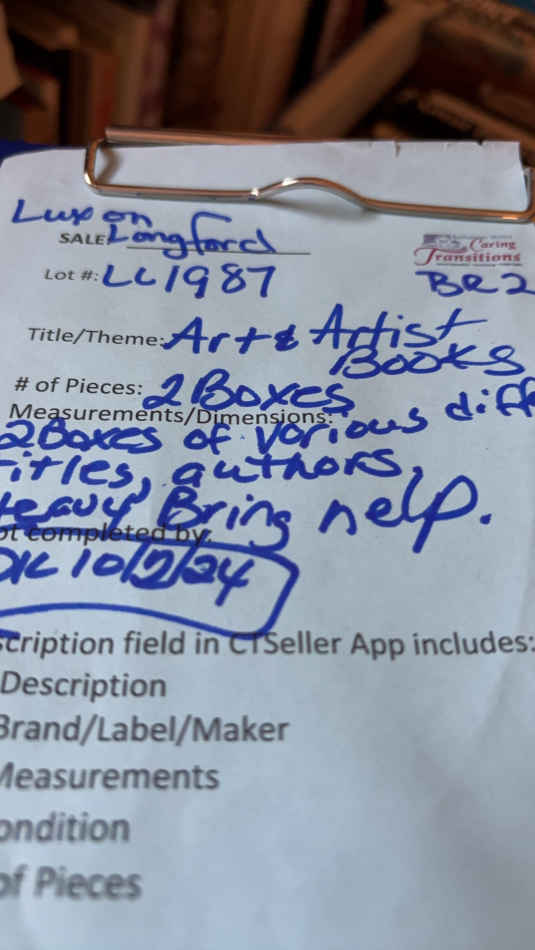 Luxon
SALE: Longford
Caring
Transitions
Lot #: LL1987
BR2
Title/Theme: Art & Artist
Books
# of Pieces: 2 Boxes
Measurements/Dimensions:
2 Boxes of various diff
titles, authors,
Heavy Bring help.
ot completed by:
DK 10/2/24
scription field in CTSeller App includes:
Description
Brand/Label/Maker
Measurements
ondition
of Pieces